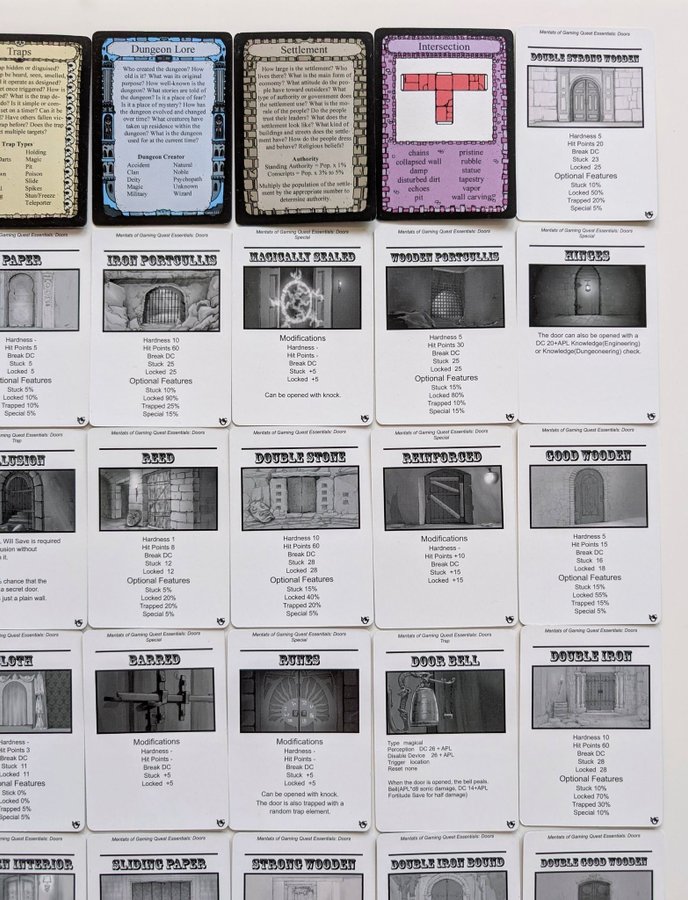 Traps
hidden or disguised?
be heard, seen, smelled,
it operate as designed?
once triggered? How is
What is the trap de-
Is it simple or com-
set on a time? Can it be
Have others fallen vic-
rap before? Does the trap
multiple targets?
Trap Types
Holding
Darts Magic
Pit
Poison
Slide
Spikes
Stun/Freeze
Teleporter
Dungeon Lore
Who created the dungeon? How
old is it? What was its original
purpose? How well-known is the
dungeon? What stories are told of
the dungeon? Is it a place of fear?
Is it a place of mystery? How has
the dungeon evolved and changed
over time? What creatures have
taken up residence within the
dungeon? What is the dungeon
used for at the current time?
Dungeon Creator
Accident Natural
Clan Noble
Deity Psychopath
Magic Unknown
Military Wizard
Settlement
How large is the settlement? Who
lives there? What is the main form of
economy? What attitude do the peo-
ple have toward outsiders? What
type of authority or government does
the settlement use? What is the mo-
rale of the people? Do the people
trust their leaders? What does the
settlement look like? What kind of
buildings and streets does the settle-
ment have? How do the people dress
and behave? Religious beliefs?
Authority
Standing Authority = Pop. x 1%
Conscripts = Pop. x 3% to 5%
Multiply the population of the settle-
ment by the appropriate number to
determine authority.
Intersection
chains pristine
collapsed wall rubble
damp statue
disturbed dirt tapestry
echoes vapor
pit wall carving
Mentats of Gaming Quest Essentials: Doors
DOUBLE STRONG WOODEN
Hardness 5
Hit Points 20
Break DC
Stuck 23
Locked 25
Optional Features
Stuck 10%
Locked 50%
Trapped 20%
Special 5%
Quest Essentials: Doors
PAPER
Hardness -
Hit Points 5
Break DC
Stuck 5
Locked 5
Optional Features
Stuck 5%
Locked 10%
Trapped 5%
Special 5%
Mentats of Gaming Quest Essentials: Doors
IRON PORTCULLIS
Hardness 10
Hit Points 60
Break DC
Stuck 25
Locked 25
Optional Features
Stuck 10%
Locked 90%
Trapped 25%
Special 15%
Mentats of Gaming Quest Essentials: Doors
Special
MAGICALLY SEALED
Modifications
Hardness -
Hit Points -
Break DC
Stuck +5
Locked +5
Can be opened with knock.
Mentats of Gaming Quest Essentials: Doors
WOODEN PORTCULLIS
Hardness 5
Hit Points 30
Break DC
Stuck 25
Locked 25
Optional Features
Stuck 15%
Locked 80%
Trapped 10%
Special 15%
Mentats of Gaming Quest Essentials: Doors
Special
HINGES
The door can also be opened with a
DC 20+APL Knowledge(Engineering)
or Knowledge(Dungeoneering) check.
Quest Essentials: Doors
Trap
LUSION
Will Save is required
usion without
it.
chance that the
a secret door.
just a plain wall.
Mentats of Gaming Quest Essentials: Doors
REED
Hardness 1
Hit Points 8
Break DC
Stuck 12
Locked 12
Optional Features
Stuck 5%
Locked 20%
Trapped 20%
Special 5%
Mentats of Gaming Quest Essentials: Doors
DOUBLE STONE
Hardness 10
Hit Points 60
Break DC
Stuck 28
Locked 28
Optional Features
Stuck 15%
Locked 40%
Trapped 20%
Special 5%
Mentats of Gaming Quest Essentials: Doors
Special
REINFORCED
Modifications
Hardness -
Hit Points +10
Break DC
Stuck +15
Locked +15
Mentats of Gaming Quest Essentials: Doors
GOOD WOODEN
Hardness 5
Hit Points 15
Break DC
Stuck 16
Locked 18
Optional Features
Stuck 15%
Locked 55%
Trapped 15%
Special 5%
Quest Essentials: Doors
LOTH
Hardness -
Hit Points 3
Break DC
Stuck 11
Locked 11
Optional Features
Stick 0%
Locked 0%
Trapped 5%
Special 5%
Mentats of Gaming Quest Essentials: Doors
Special
BARRED
Modifications
Hardness -
Hit Points -
Break DC
Stuck +5
Locked +5
Mentats of Gaming Quest Essentials: Doors
Special
RUNES
Modifications
Hardness -
Hit Points -
Break DC
Stuck +5
Locked +5
Can be opened with knock.
The door is also trapped with a
random trap element.
Mentats of Gaming Quest Essentials: Doors
Trap
DOOR BELL
Type magical
Perception DC 26 + APL
Disable Device 26 + APL
Trigger location
Reset none
When the door is opened, the bell peals.
Bell(APL*d6 sonic damage, DC 14+APL
Fortitude Save for half damage)
Mentats of Gaming Quest Essentials: Doors
DOUBLE IRON
Hardness 10
Hit Points 60
Break DC
Stuck 28
Locked 28
Optional Features
Stuck 10%
Locked 70%
Trapped 30%
Special 10%
Quest Essentials: Doors
N INTERIOR
Mentats of Gaming Quest Essentials: Doors
SLIDING PAPER
Mentats of Gaming Quest Essentials: Doors
STRONG WOODEN
Mentats of Gaming Quest Essentials: Doors
DOUBLE IRON BOUND
Mentats of Gaming Quest Essentials: Doors
DOUBLE GOOD WOODEN